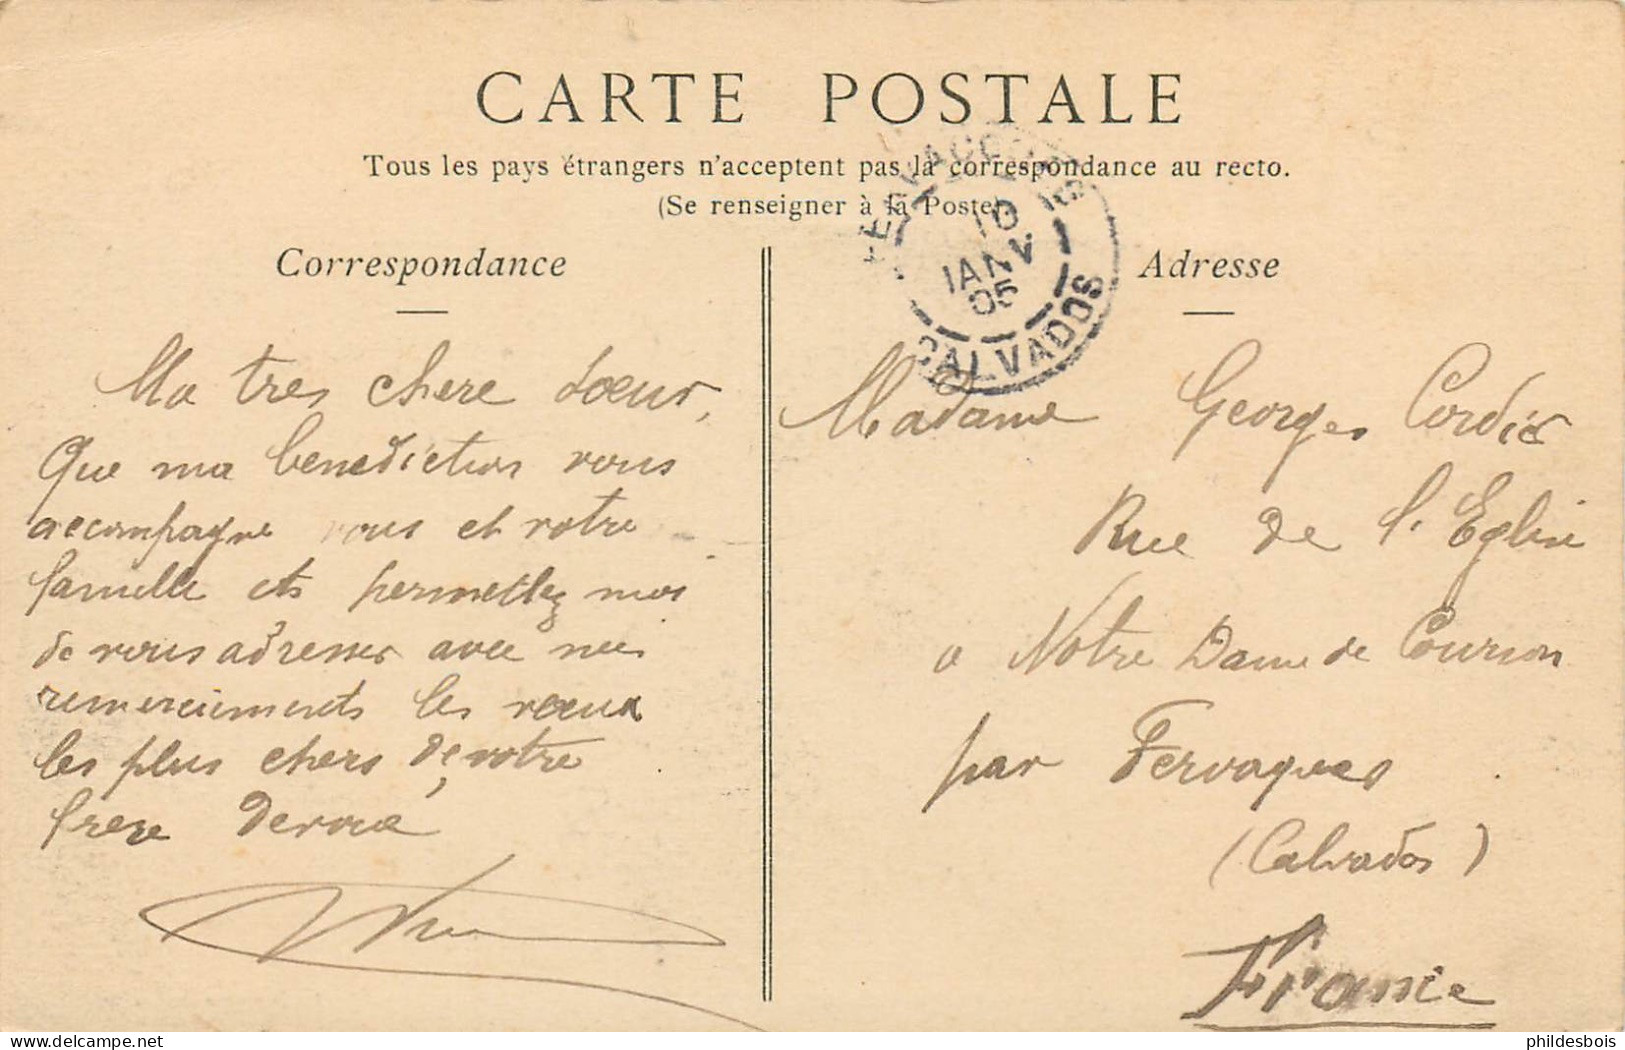 CARTE POSTALE
Tous les pays étrangers n'acceptent pas la correspondance au recto.
(Se renseigner à la Poste)
Correspondance
Ma tres chere soeur,
Que ma benediction vous
accompagne vous et votre
famille et permettez moi
de vous adresser avec mes
remerciements les voeux
les plus chers de votre
frere devoué
Adresse
10
JANV
05
CALVADOS
Madame Georges Cordier
Rue de l'Eglise
a Notre Dame de Courson
par Fervaques
(Calvados)
France
phildesbois